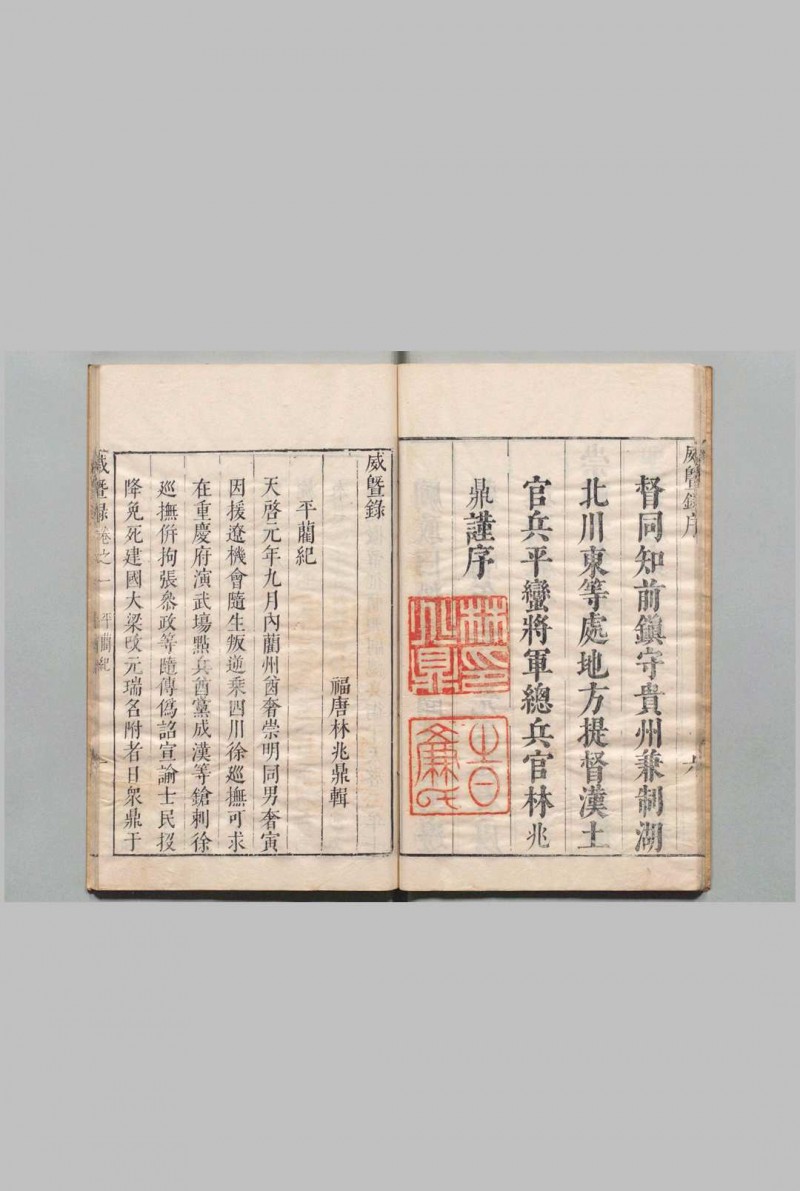 威曁錄序
督同知前鎮守貴州兼制湖
北川東等處地方提督漢土
官兵平蠻將軍總兵官林兆
鼎謹序
林印
兆鼎
六
威曁錄
福唐林兆鼎輯
平藺紀
天啓元年九月內藺州酋奢崇明同男奢寅
因援遼機會隨生叛逆乘四川徐巡撫可求
在重慶府演武塲點兵酋黨成漢等鎗刺徐
巡撫併拘張叅政等隨傳僞詔宣諭士民投
降免死建國大梁改元瑞名附者日衆鼎于
威曁錄卷之一
平藺紀
一